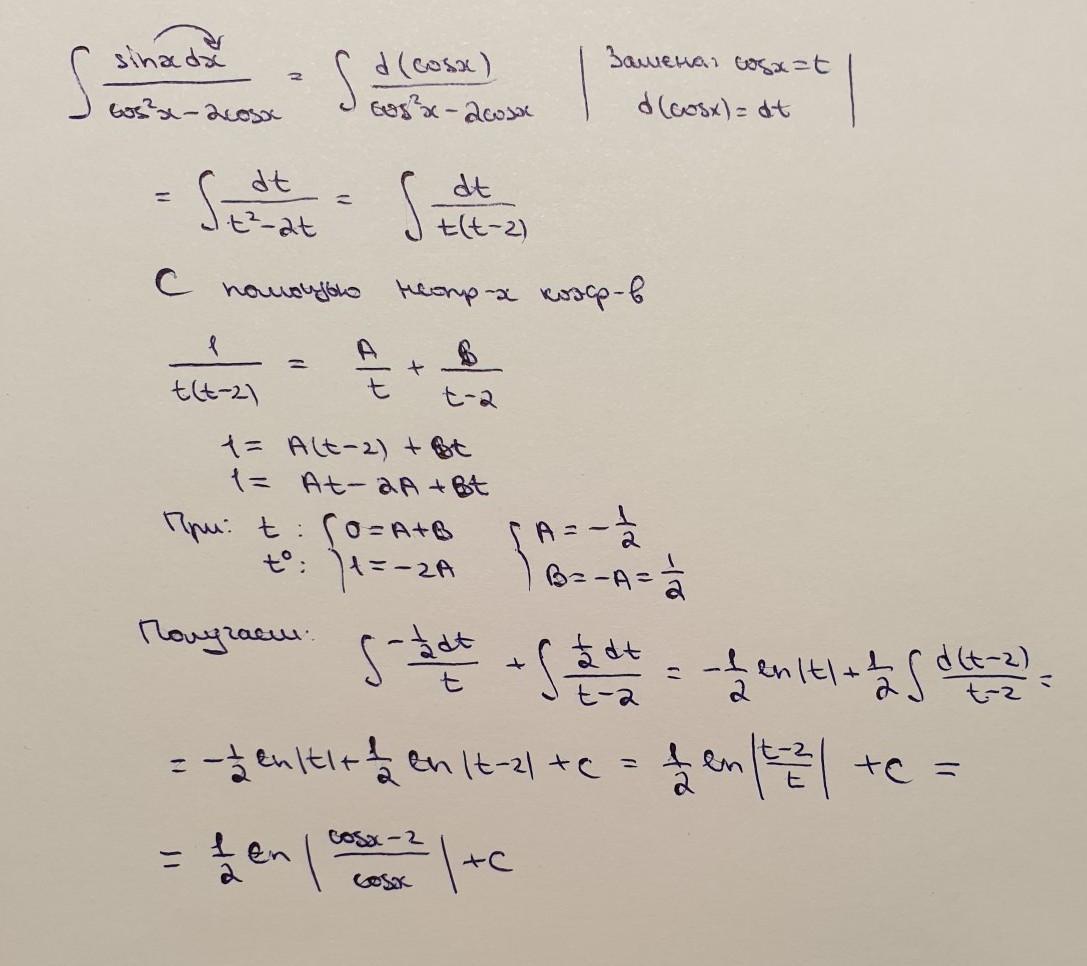 ∫ sinx dx / (cos²x − 2cosx) = ∫ d(cosx) / (cos²x − 2cosx) | Замена: cosx = t
d(cosx) = dt |
= ∫ dt / (t² − 2t) = ∫ dt / (t(t−2))
С помощью неопр-х коэф-в
1 / (t(t−2)) = A/t + B/(t−2)
1 = A(t−2) + Bt
1 = At − 2A + Bt
При: t : { 0 = A+B { A = −1/2
t⁰ : 1 = −2A B = −A = 1/2
Получаем: ∫ −½dt / t + ∫ ½ dt / (t−2) = −1/2 ln|t| + 1/2 ∫ d(t−2) / (t−2) =
= −1/2 ln|t| + 1/2 ln|t−2| + C = 1/2 ln|(t−2)/t| + C =
= 1/2 ln|(cosx−2)/cosx| + C